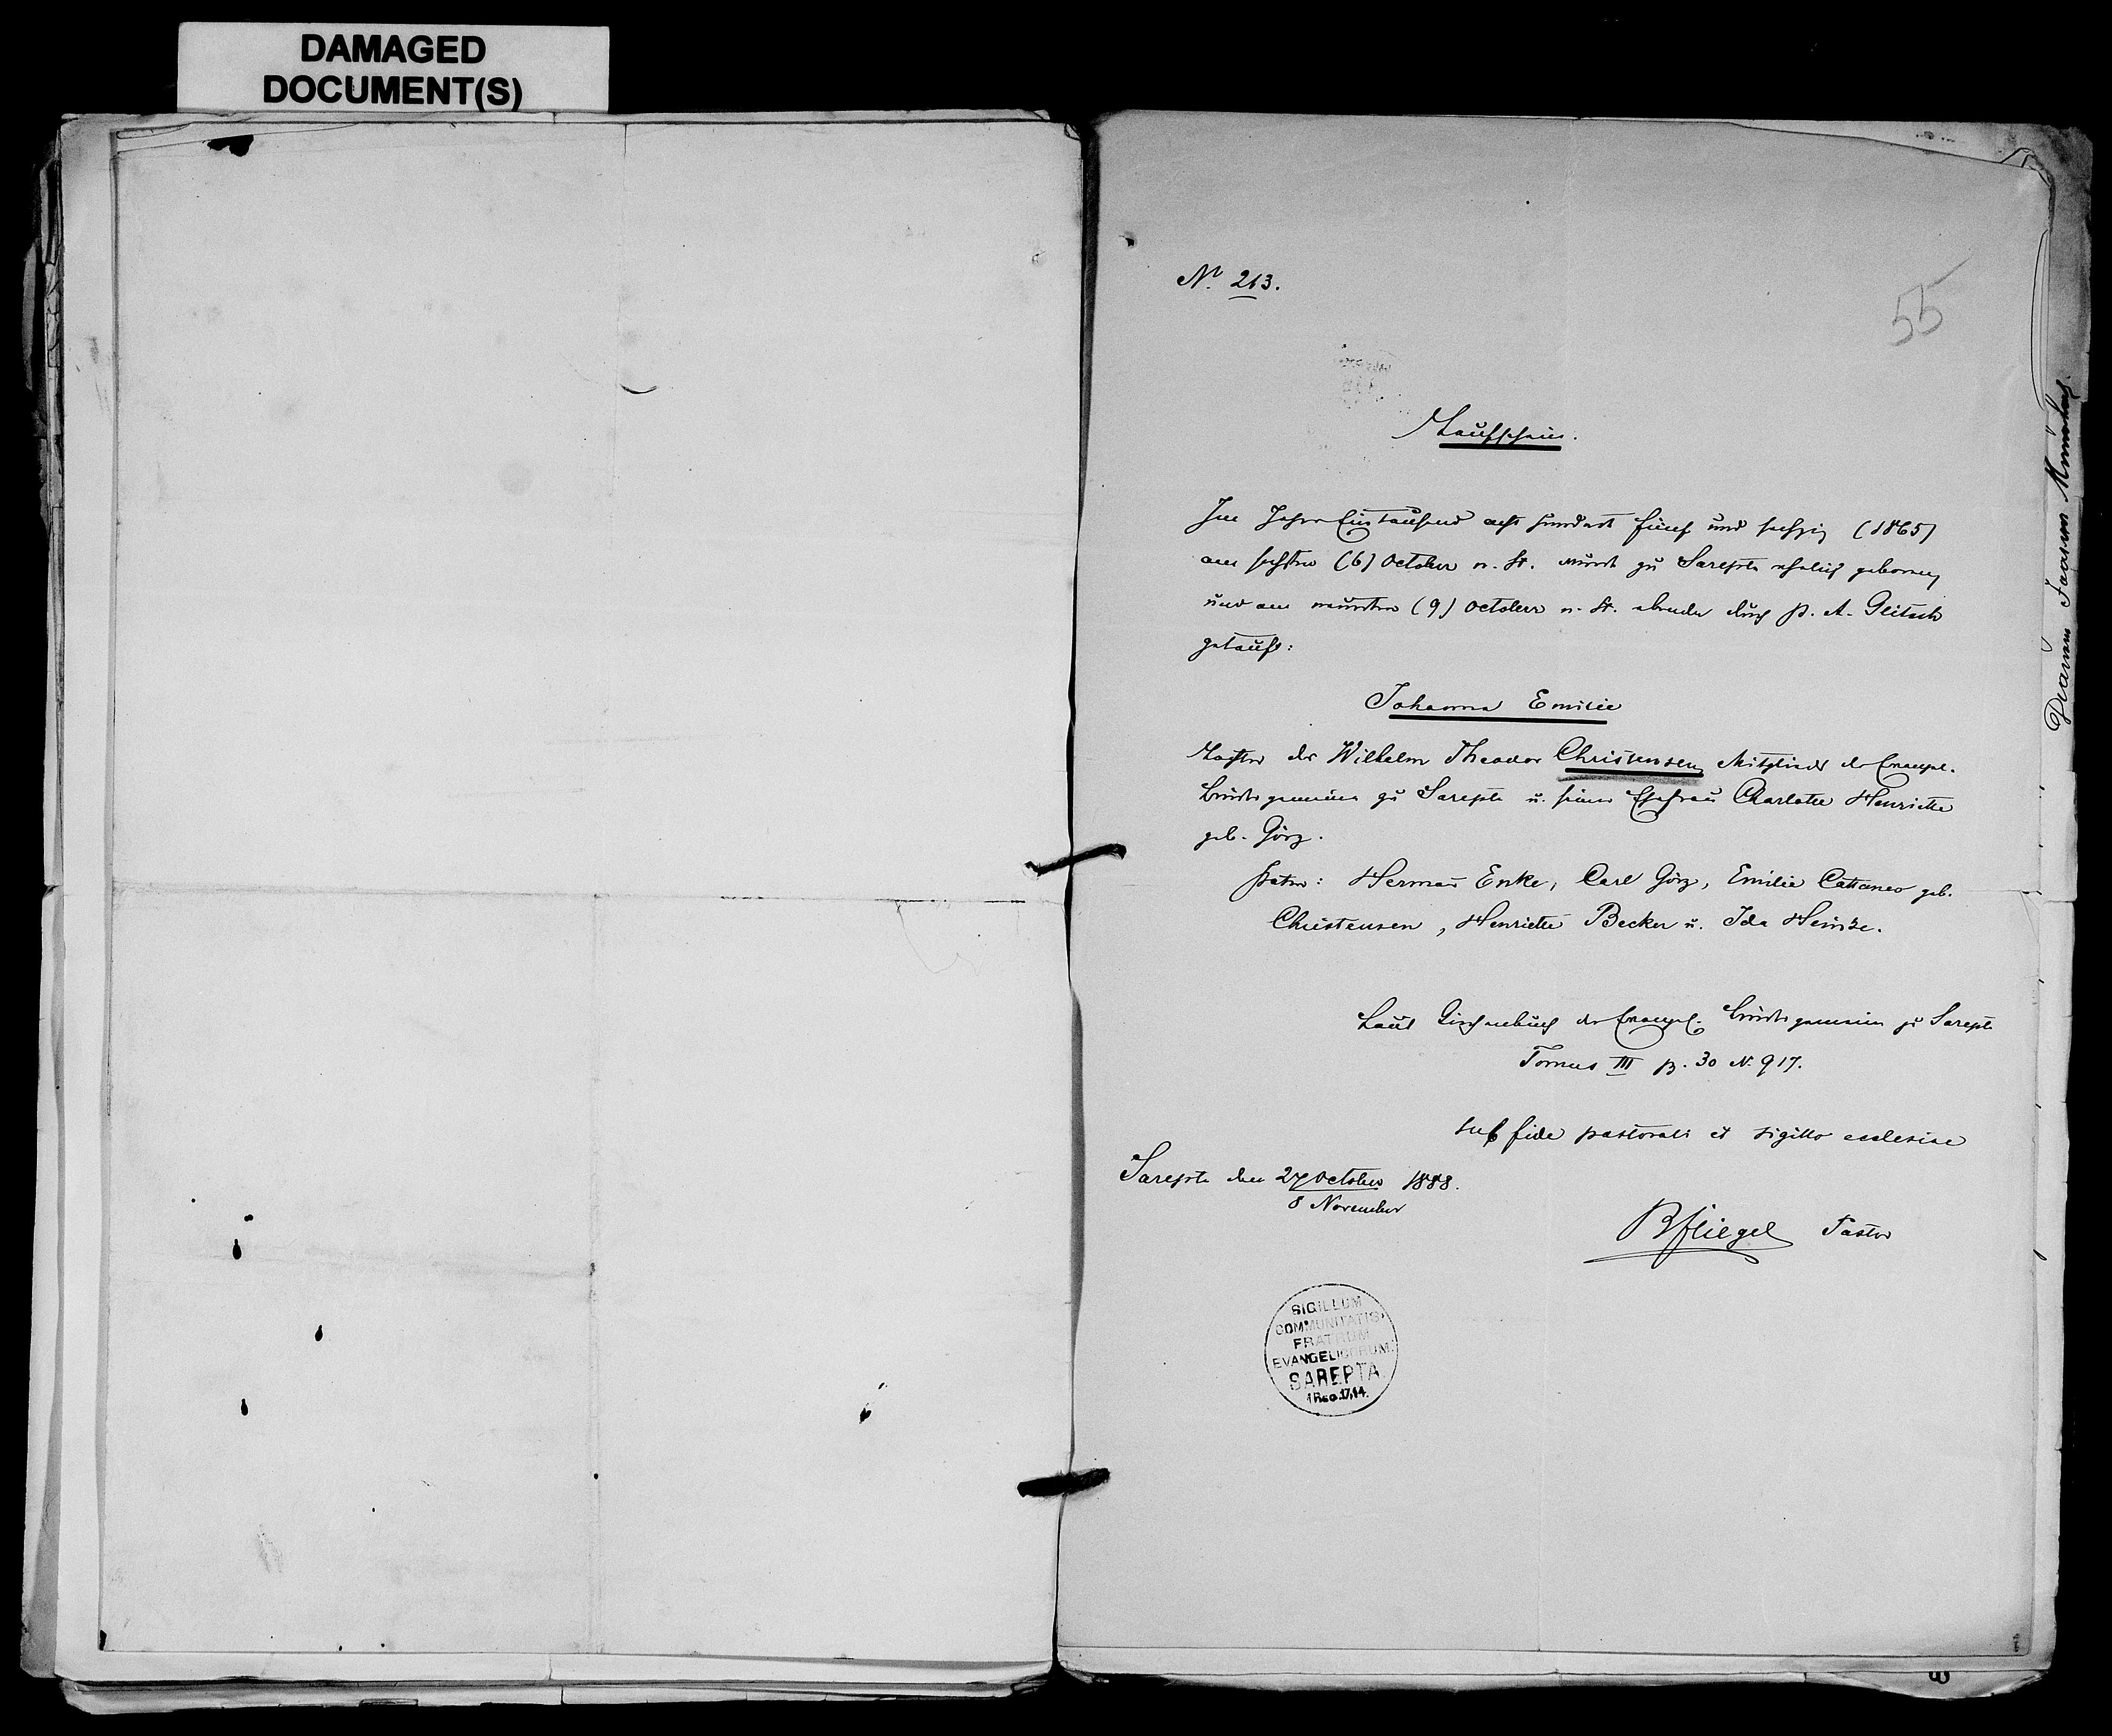 DAMAGED
DOCUMENT(S)
No. 213.
55
Taufschein.
Im Jahre Eintausend acht hundert fünf und sechzig (1865)
am sechsten (6) October n. St. wurde zu Sarepta ehelich geboren
und am neunten (9) October n. St. durch p. A. Glitsch
getauft:
Johanna Emilie
Tochter des Wilhelm Theodor Christensen Mitglieds der Evangel.
Brüdergemeine zu Sarepta u. seiner Ehefrau Charlotte Henriette
geb. Görz.
Paten: Herman Enke, Carl Görz, Emilie Cattaneo geb.
Christensen, Henriette Becker u. Ida Heinze.
Laut Kirchenbuch der Evangel. Brüdergemeine zu Sarepta
Tomus III p. 30 N. 917.
sub fide pastorali et sigillo ecclesiae
Sarepta den 27 October 1888.
8 November
Pfliegel Pastor
SIGILLUM
COMMUNITATIS
FRATRUM
EVANGELICORUM
SAREPTA